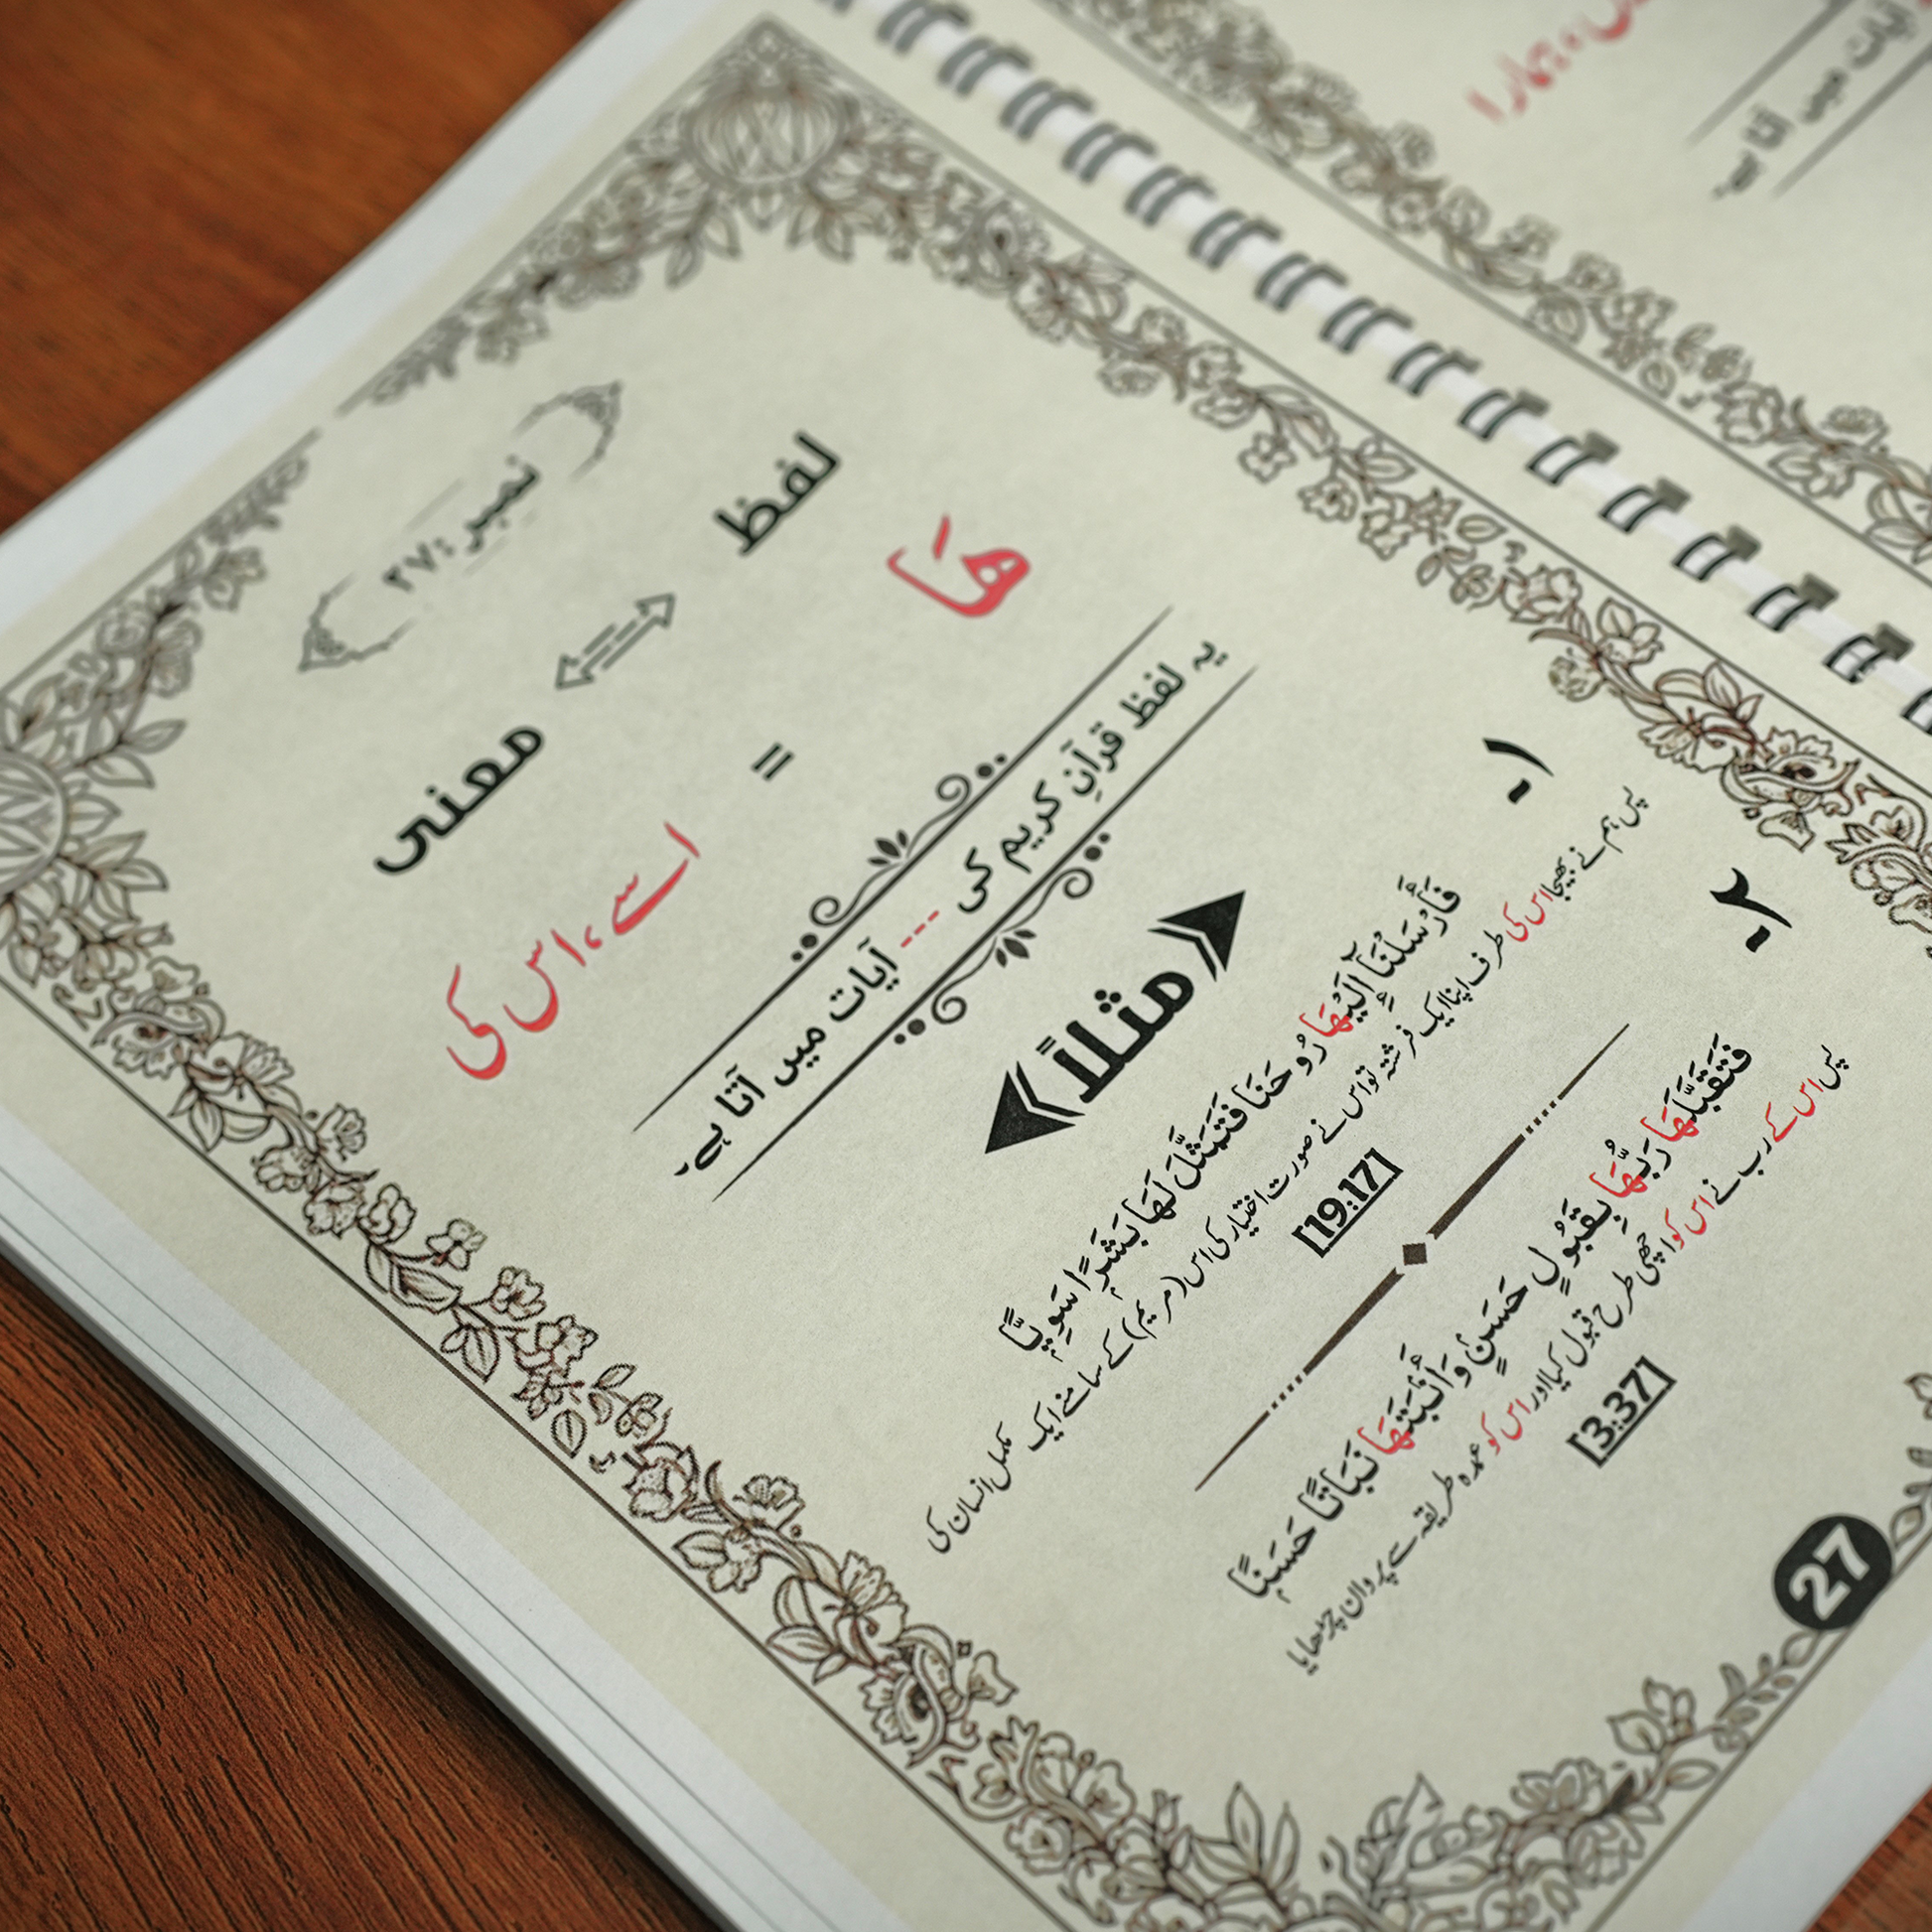 نمبر: ۲۷
لفظ ⟺ معنی
هَا = اسے، اس کی
یہ لفظ قرآنِ کریم کی --- آیات میں آتا ہے۔
مثلاً
۱-
فَأَرْسَلْنَآ إِلَيْهَا رُوحَنَا فَتَمَثَّلَ لَهَا بَشَرًا سَوِيًّا
پس ہم نے بھیجا اس کی طرف اپنا ایک فرشتہ تو اس نے صورت اختیار کی اس (مریم) کے سامنے ایک مکمل انسان کی
[19:17]
۲-
فَتَقَبَّلَهَا رَبُّهَا بِقَبُولٍ حَسَنٍ وَأَنْبَتَهَا نَبَاتًا حَسَنًا
پس اس کے رب نے اس کو اچھی طرح قبول کیا اور اس کو عمدہ طریقہ سے پروان چڑھایا
[3:37]
27
ہمارا
آیات میں آتا ہے۔